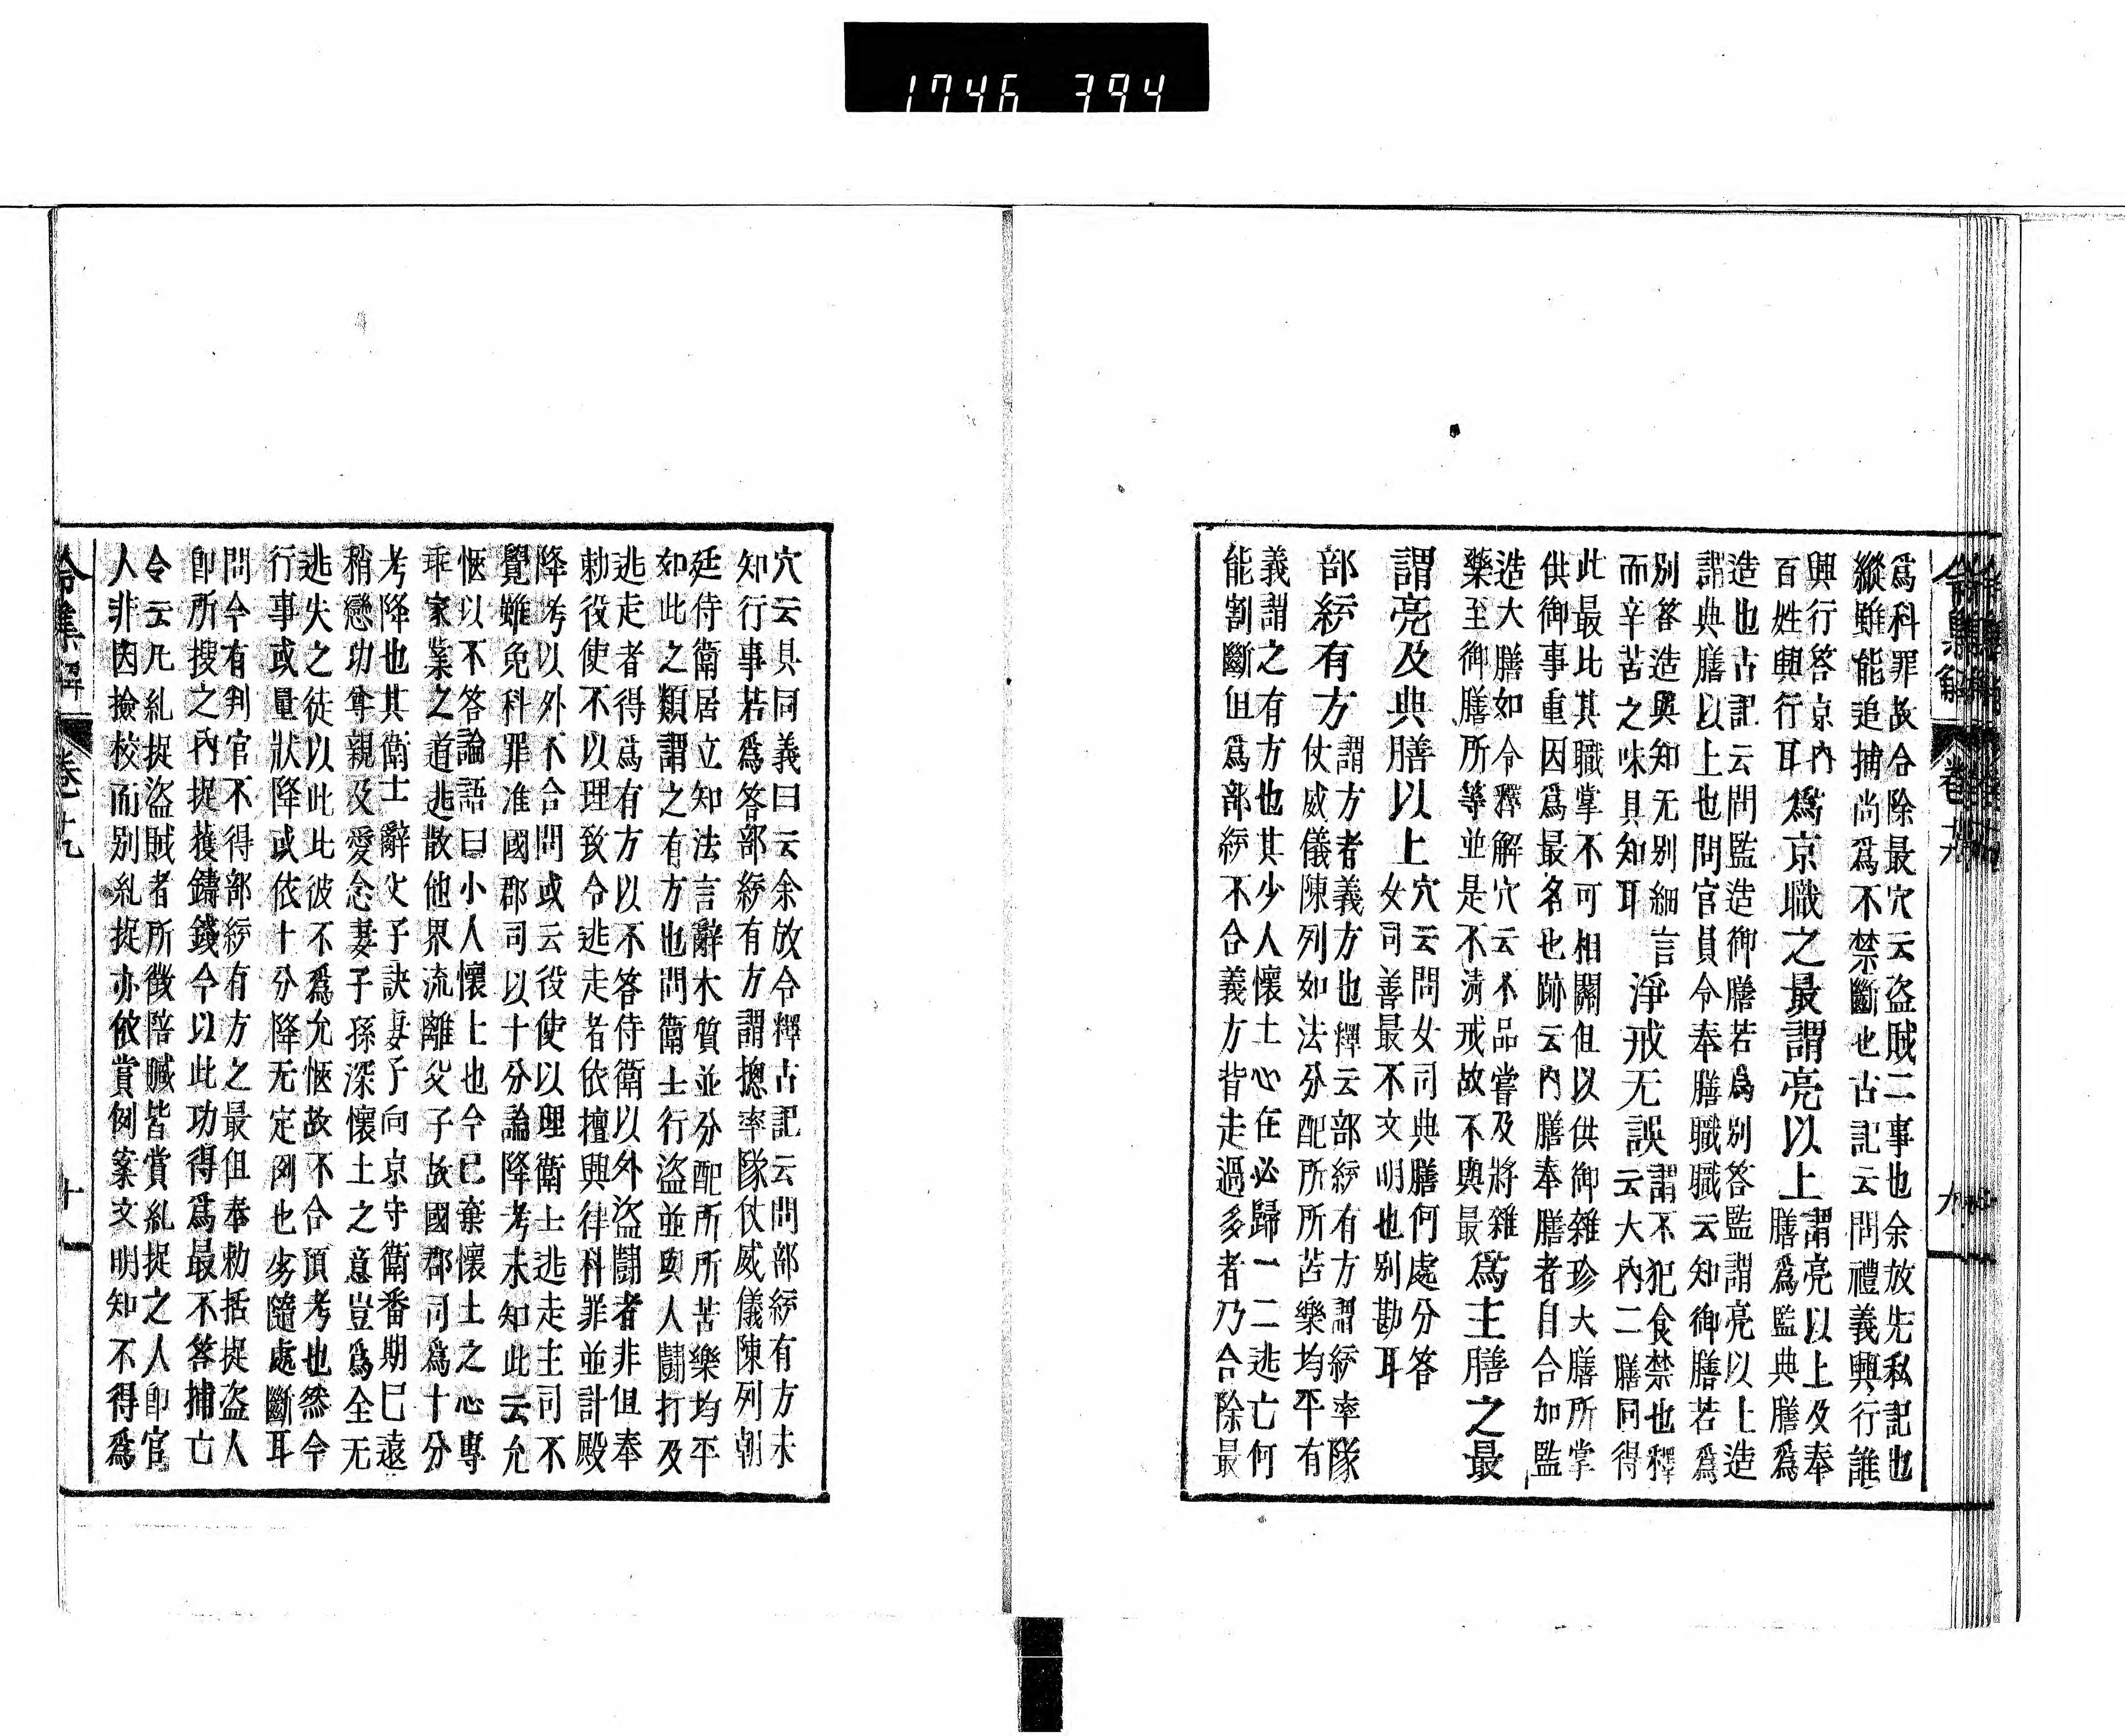 1746 394
爲科罪故合除最穴云盜賊二事也余放先私記也
縱雖能追捕尚爲不禁斷也古記云問禮義興行誰
興行答京內
百姓興行耳爲京職之最謂亮以上謂亮以上及奉
膳爲監典膳爲
造也古記云問監造御膳若爲別答監謂亮以上造
謂典膳以上也問官員令奉膳職職云知御膳若爲
別答造與知无別細言
而辛苦之味具知耳淨戒无誤謂不犯食禁也釋
云大內二膳同得
此最比其職掌不可相關但以供御雜珍大膳所掌
供御事重因爲最名也跡云內膳奉膳者自合加監
造大膳如令釋解穴云不品嘗及將雜
藥至御膳所等並是不淸戒故不與最爲主膳之最
謂亮及典膳以上穴云問女司典膳何處分答
女司善最不文明也別勘耳
部統有方謂方者義方也釋云部統有方謂統率隊
仗威儀陳列如法分配所所苦樂均平有
義謂之有方也其少人懷土心在必歸一二逃亡何
能割斷但爲部統不合義方皆走過多者乃合除最
令集解 卷十九 九
穴云具同義曰云余放令釋古記云問部統有方未
知行事若爲答部統有方謂摠率隊仗威儀陳列朝
廷侍衛居立知法言辭木質並分配所所苦樂均平
如此之類謂之有方也問衛士行盜並與人鬪打及
逃走者得爲有方以不答侍衛以外盜鬪者非但奉
勅役使不以理致令逃走者依擅興律科罪並計殿
降考以外不合問或云役使以理衛士逃走主司不
覺雖免科罪准國郡司以十分論降考未知此云允
愜以不答論語曰小人懷上也今已棄懷土之心專
乖家業之道逃散他界流離父子故國郡司爲十分
考降也其衛士辭父子訣妻子向京守衛番期已遠
稍戀功尊親及愛念妻子孫深懷土之意豈爲全无
逃失之徒以此比彼不爲允愜故不合預考也然令
行事或量狀降或依十分降无定例也劣隨處斷耳
問今有判官不得部統有方之最但奉勅括捉盜人
卽所搜之內捉獲鑄錢今以此功得爲最不答捕亡
令云凡糺捉盜賊者所徵陪贓皆賞糺捉之人卽官
人非因撿校而別糺捉亦依賞例藁文明知不得爲
令集解 卷十九 十一